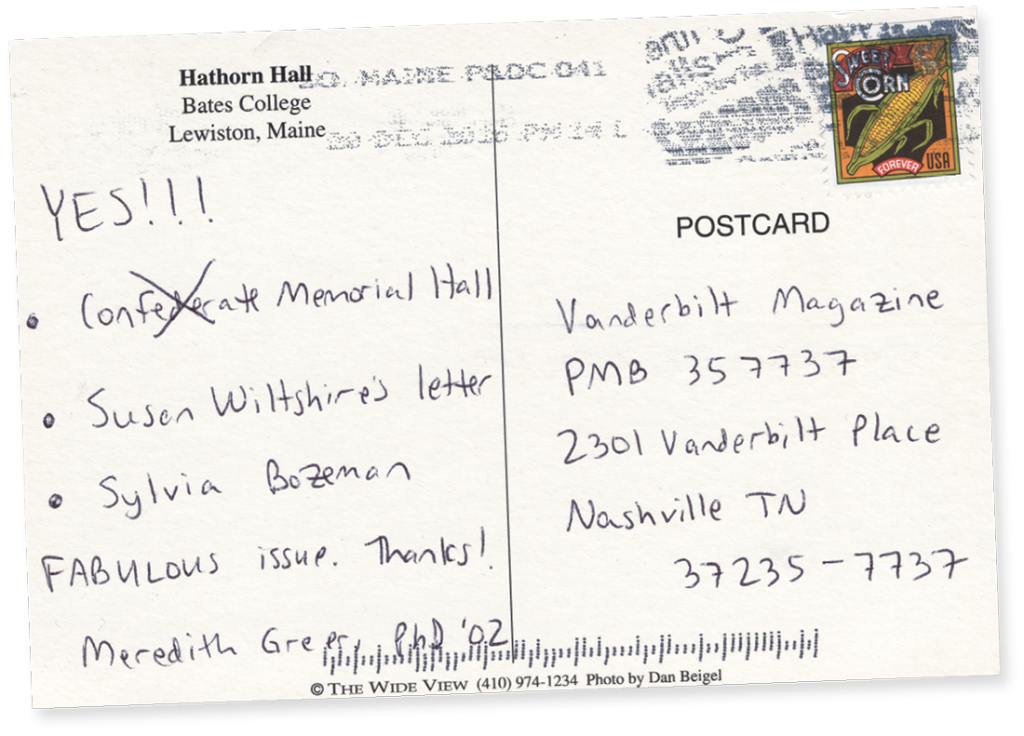 Hathorn Hall
Bates College
Lewiston, Maine
SO. MAINE P&DC 041
SWEET CORN
FOREVER USA
YES!!!
• Confederate Memorial Hall
• Susan Wiltshire's letter
• Sylvia Bozeman
FABULOUS issue. Thanks!
Meredith Greer, PhD '02
POSTCARD
Vanderbilt Magazine
PMB 357737
2301 Vanderbilt Place
Nashville TN
37235-7737
© THE WIDE VIEW (410) 974-1234 Photo by Dan Beigel